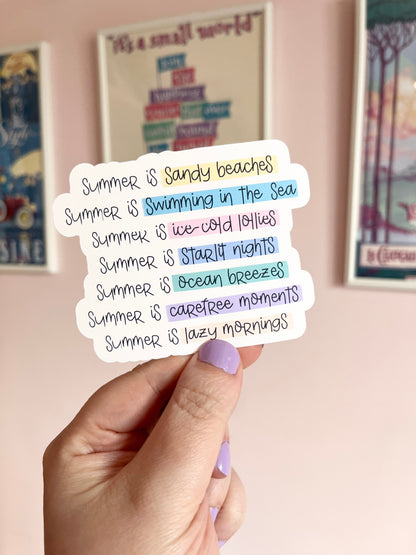 "it's a small world"
Summer is Sandy beaches
Summer is Swimming in the Sea
Summer is ice-cold lollies
Summer is Starlit nights
Summer is ocean breezes
Summer is carefree moments
Summer is lazy mornings